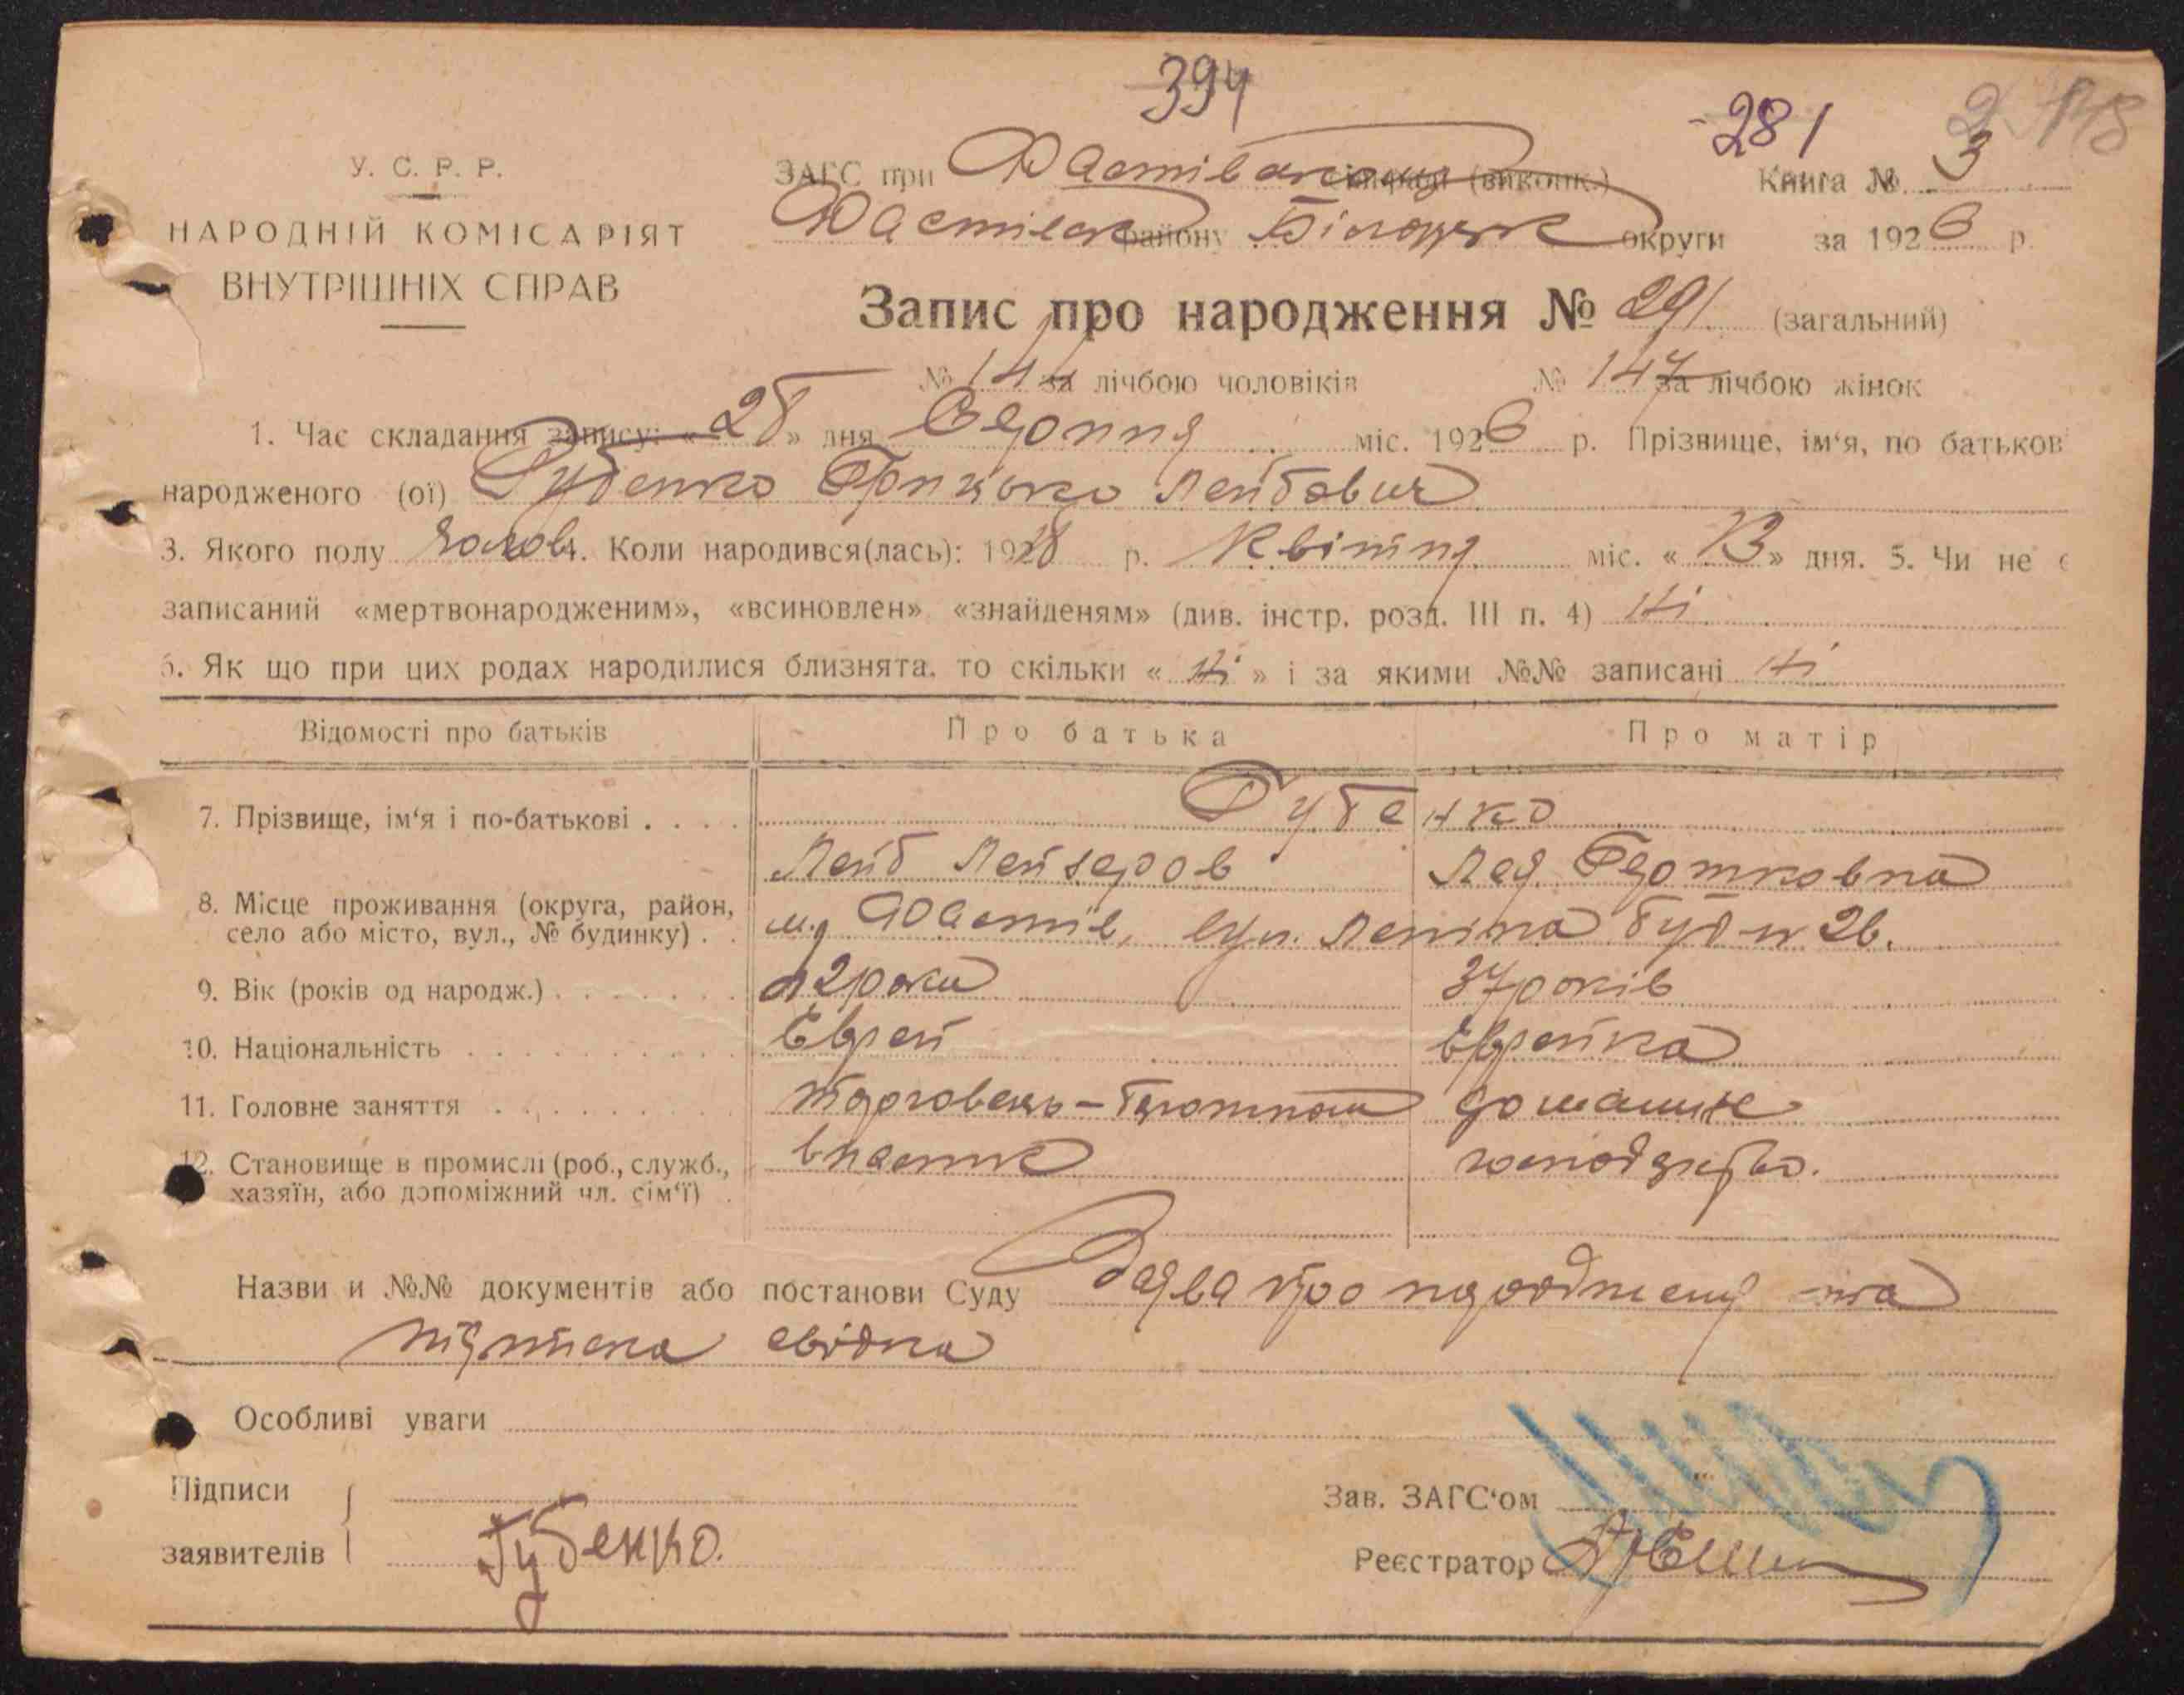 394
281
У. С. Р. Р.
НАРОДНІЙ КОМІСАРІЯТ
ВНУТРІШНІХ СПРАВ
ЗАГС при Фастівською (виконк.)
Книга № 3
Фастівськ району Білоцерк округи за 1926 р.
Запис про народження № 291 (загальний)
№ 144 за лічбою чоловіків № 147 за лічбою жінок
1. Час складання запису: « 25 » дня Серпня міс. 1926 р. Прізвище, ім'я, по батьков
народженого (ої) Губенко Грицько Лейбович
3. Якого полу Чолов 4. Коли народився(лась): 1918 р. Квітня міс. « 13 » дня. 5. Чи не є
записаний «мертвонародженим», «всиновлен» «знайденям» (див. інстр. розд. III п. 4) Ні
6. Як що при цих родах народилися близнята, то скільки « Ні » і за якими №№ записані Ні
Відомості про батьків Про батька Про матір
7. Прізвище, ім'я і по-батькові . . . . Губенко
Лейб Лейзеров
8. Місце проживання (округа, район,
село або місто, вул., № будинку) . . м. Фастів, вул. Леніна буд № 26.
9. Вік (років од народж.) . . . . . . 42 роки 37 років
10. Національність . . . . . . . . . . Еврей Еврейка
11. Головне заняття . . . . . . . . . Торговець- домашнє
12. Становище в промислі (роб., служб.,
хазяїн, або допоміжний чл. сім'ї) . власник господарство.
Назви и №№ документів або постанови Суду Заява про народження та
підписка свідка
Особливі уваги
Підписи
заявителів Губенко.
Зав. ЗАГС'ом
Реєстратор